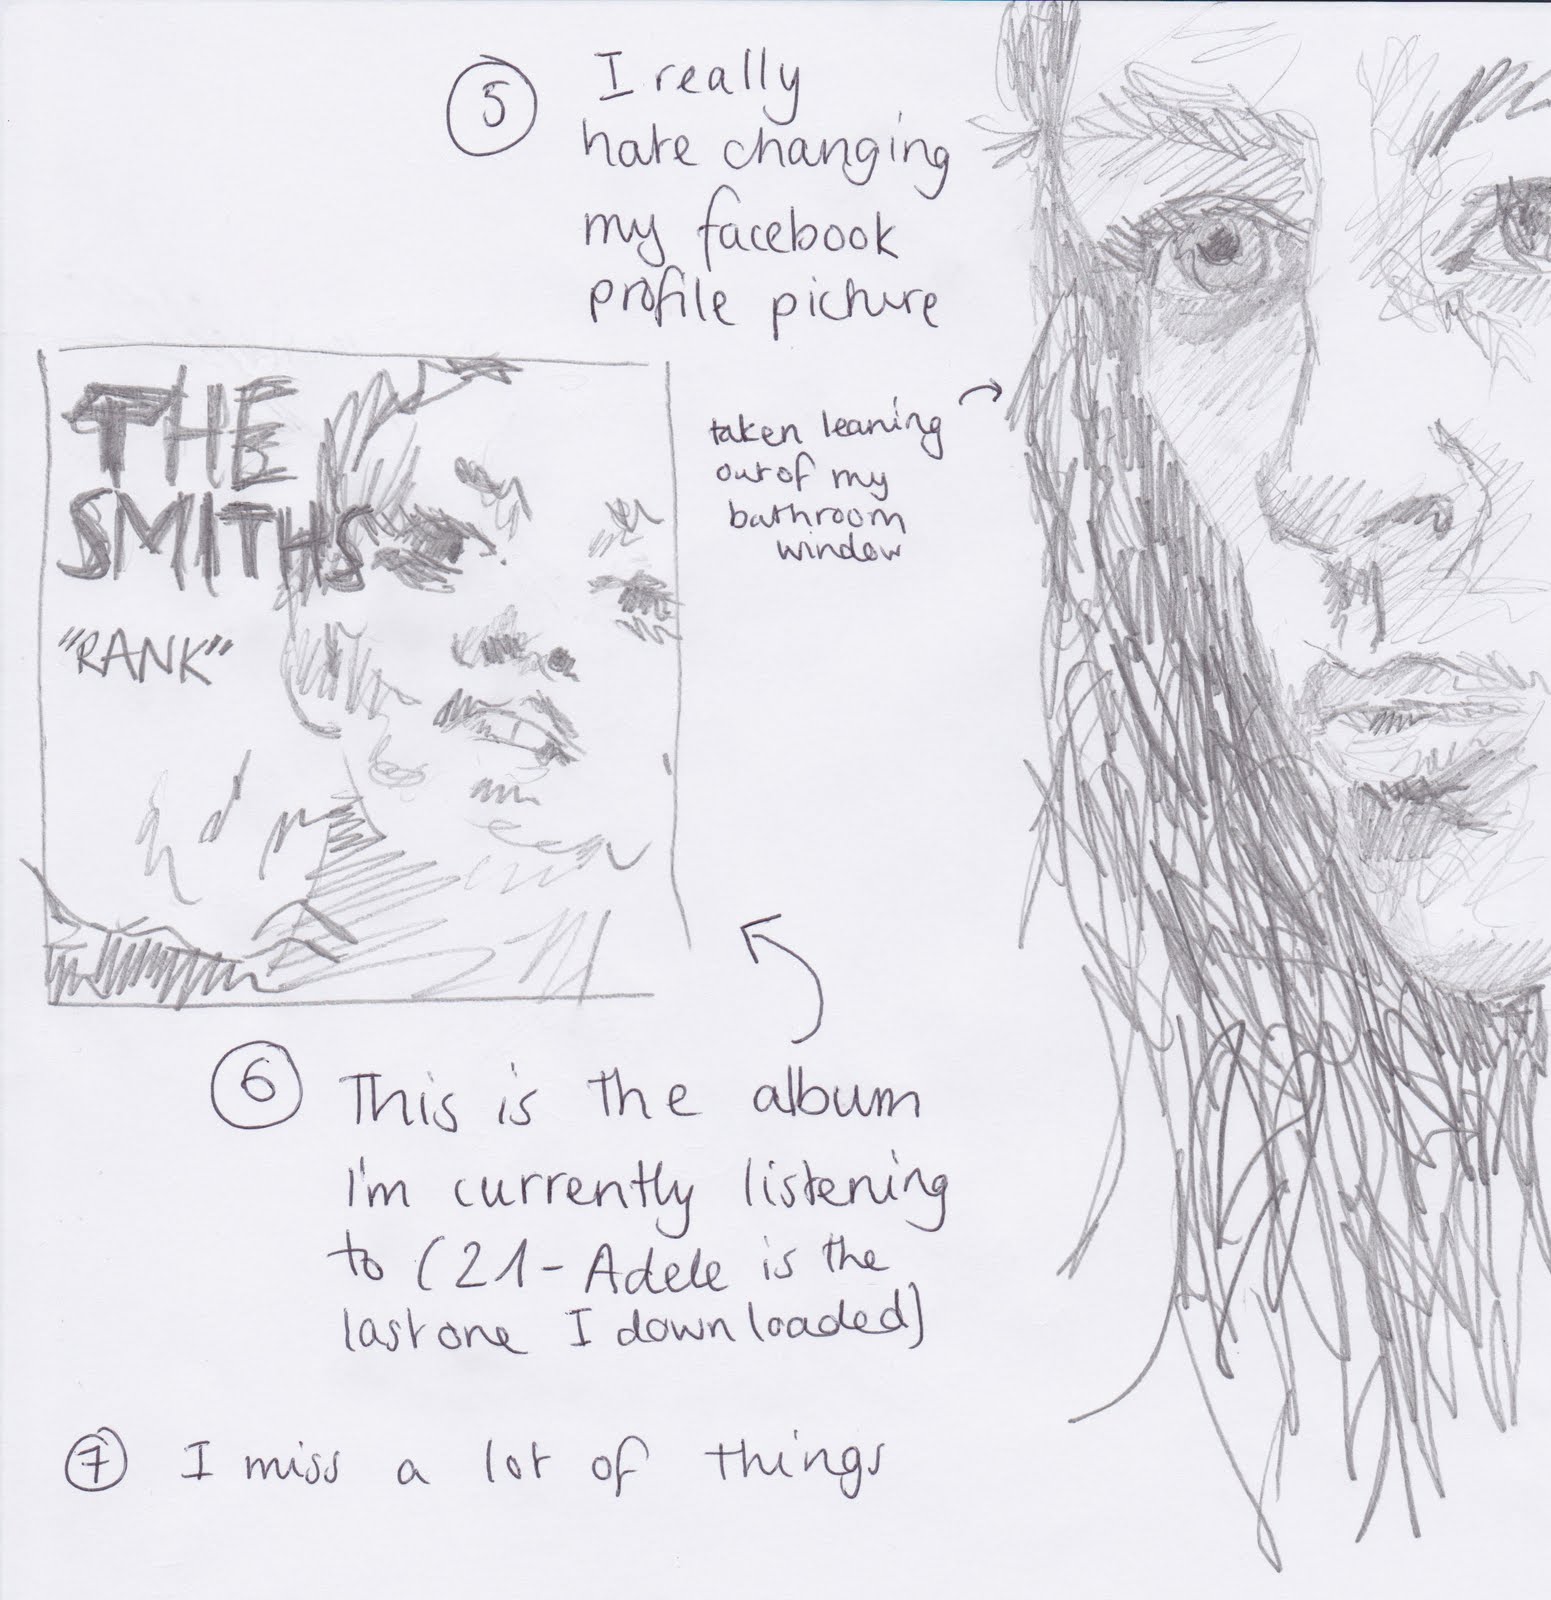 5
I really
hate changing
my facebook
profile picture
taken leaning
out of my
bathroom
window
THE
SMITHS
"RANK"
6
This is the album
I'm currently listening
to (21 - Adele is the
last one I downloaded)
7 I miss a lot of things